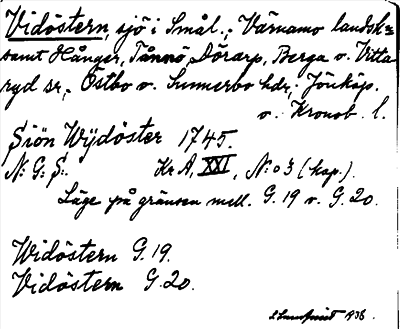 Vidöstern, sjö i Smål.; Värnamo landsk=
samt Hånger, Tånnö, Dörarp, Berga o. Vitta
ryd sr., Östbo o. Sunnerbo hdr; Jönköp.
o. Kronob. l.
Siön Wÿdöster 1745.
N: G: S:. Kr A, XXI, N:o 3 (kap.).
Läge på gränsen mell. G. 19 o. G. 20.
Widöstern G. 19.
Vidöstern G. 20.
1936.